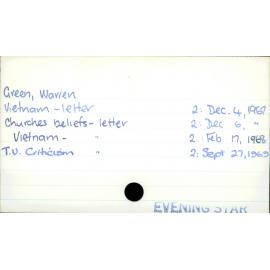 Green, Warren
Vietnam - letter 2: Dec. 4, 1967
Churches beliefs - letter 2: Dec 6, "
Vietnam - " 2: Feb 17, 1968
T.V. Criticism " 2: Sept 27, 1969
EVENING STAR